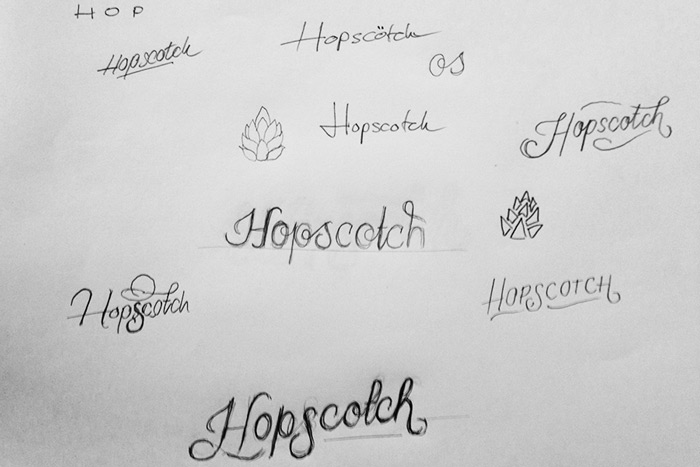 HOP
Hopscotch
Hopscötch
OS
Hopscotch
Hopscotch
Hopscotch
Hopscotch
HOPSCOTCH
Hopscotch